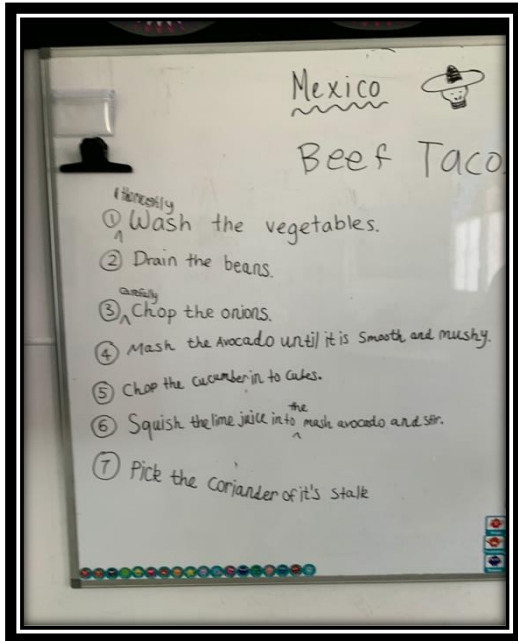 Mexico
Beef Taco
thoroughly
① Wash the vegetables.
② Drain the beans.
carefully
③ Chop the onions.
④ Mash the Avocado until it is smooth and mushy.
⑤ Chop the cucumber in to cubes.
the
⑥ Squish the lime juice into mash avocado and stir.
⑦ Pick the coriander of it's stalk